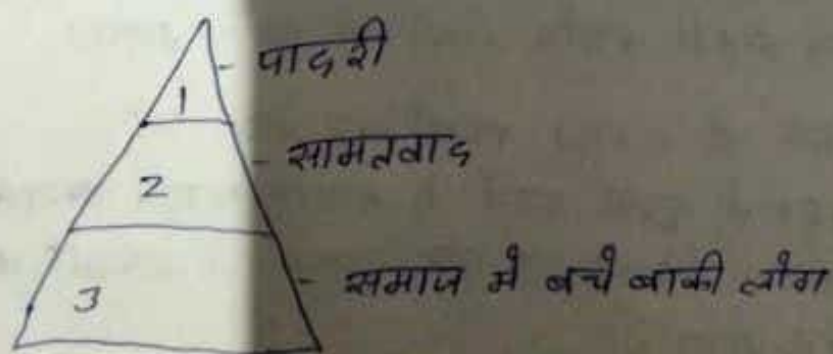 1 - पादरी
2 - सामतवाद
3 - समाज मे बचे बाकी लोग